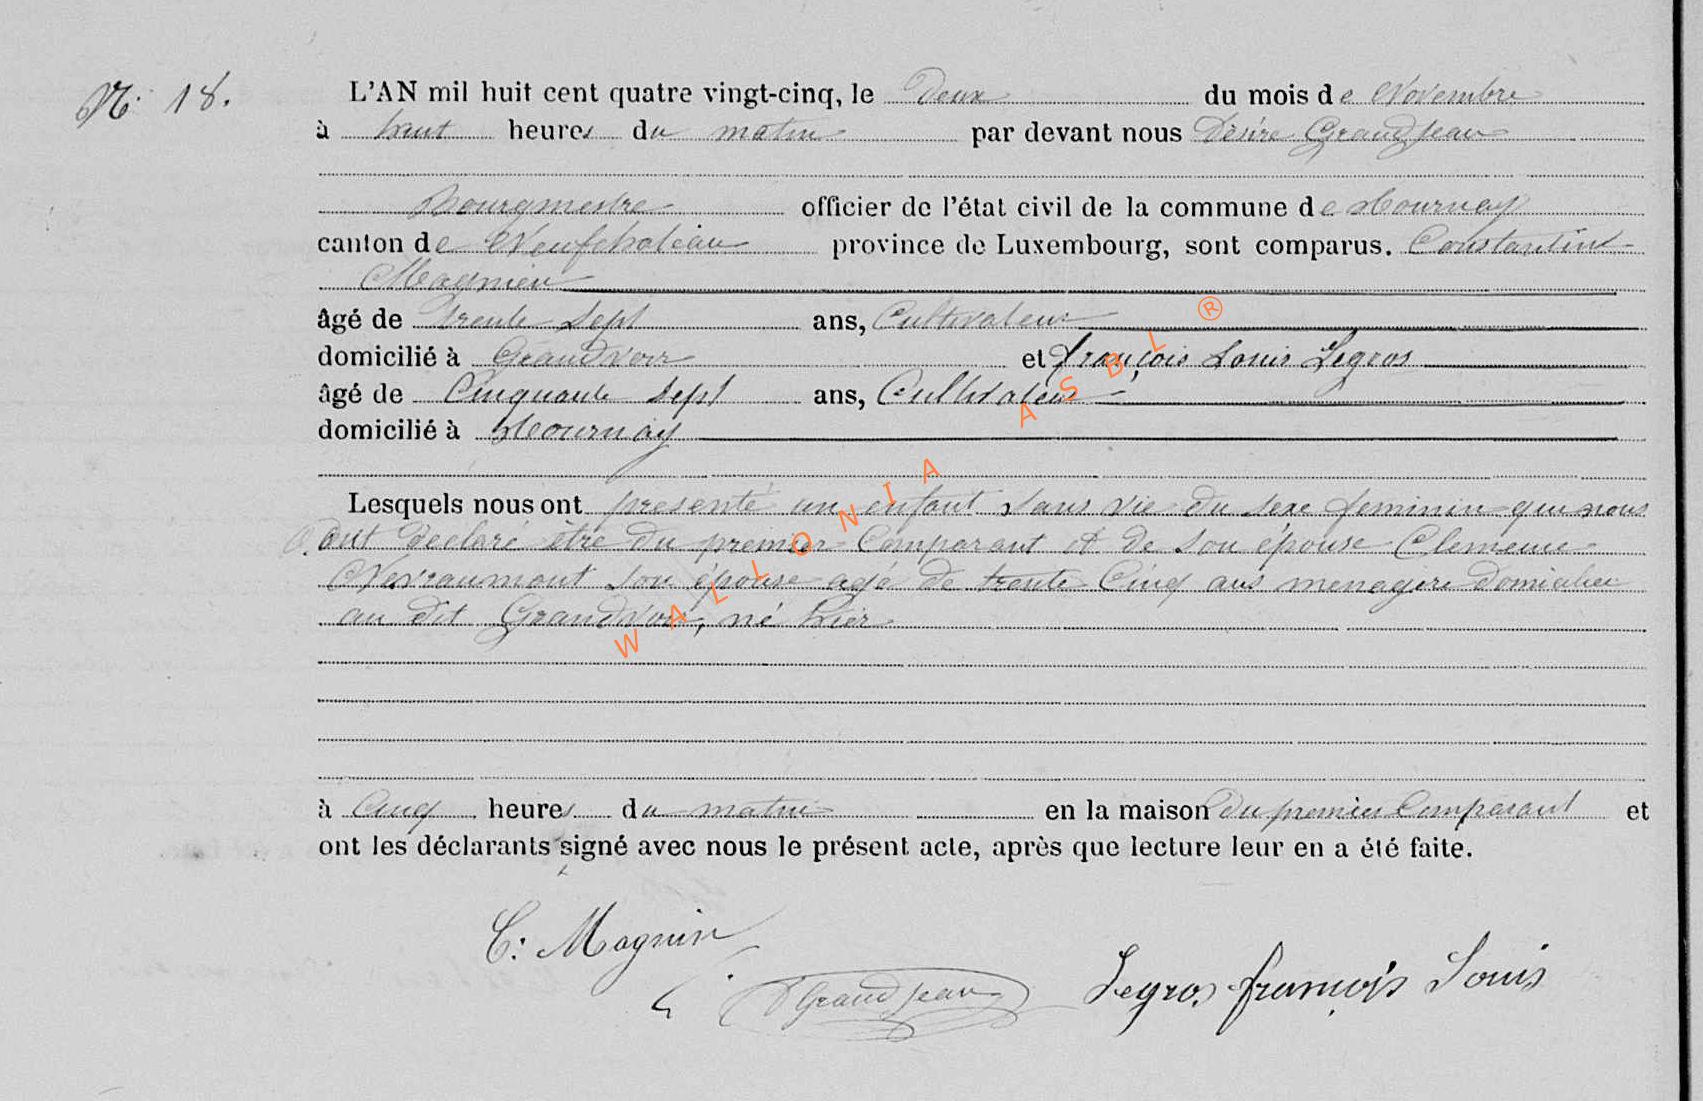 N: 18.
L'AN mil huit cent quatre vingt-cinq, le deux du mois de Novembre
à huit heures du matin par devant nous Désiré Grandjean
Bourgmestre officier de l'état civil de la commune de Tournay
canton de Neufchateau province de Luxembourg, sont comparus. Constantin
Magnien
âgé de trente sept ans, Cultivateur
domicilié à Grandvoir et françois Louis Legros
âgé de Cinquante sept ans, Cultivateur
domicilié à Tournay
Lesquels nous ont presenté un enfant sans vie du sexe feminin qui nous
ont déclaré être du premier Comparant et de son épouse Clemence
Nevraumont son épouse agé de trente Cinq ans menagère domiciliée
au dit Grandvoir, né hier
à Cinq heures du matin en la maison du premier Comparant et
ont les déclarants signé avec nous le présent acte, après que lecture leur en a été faite.
C: Magnin
D Grandjean
Legros françois Louis
WALLONIA ASBL ®